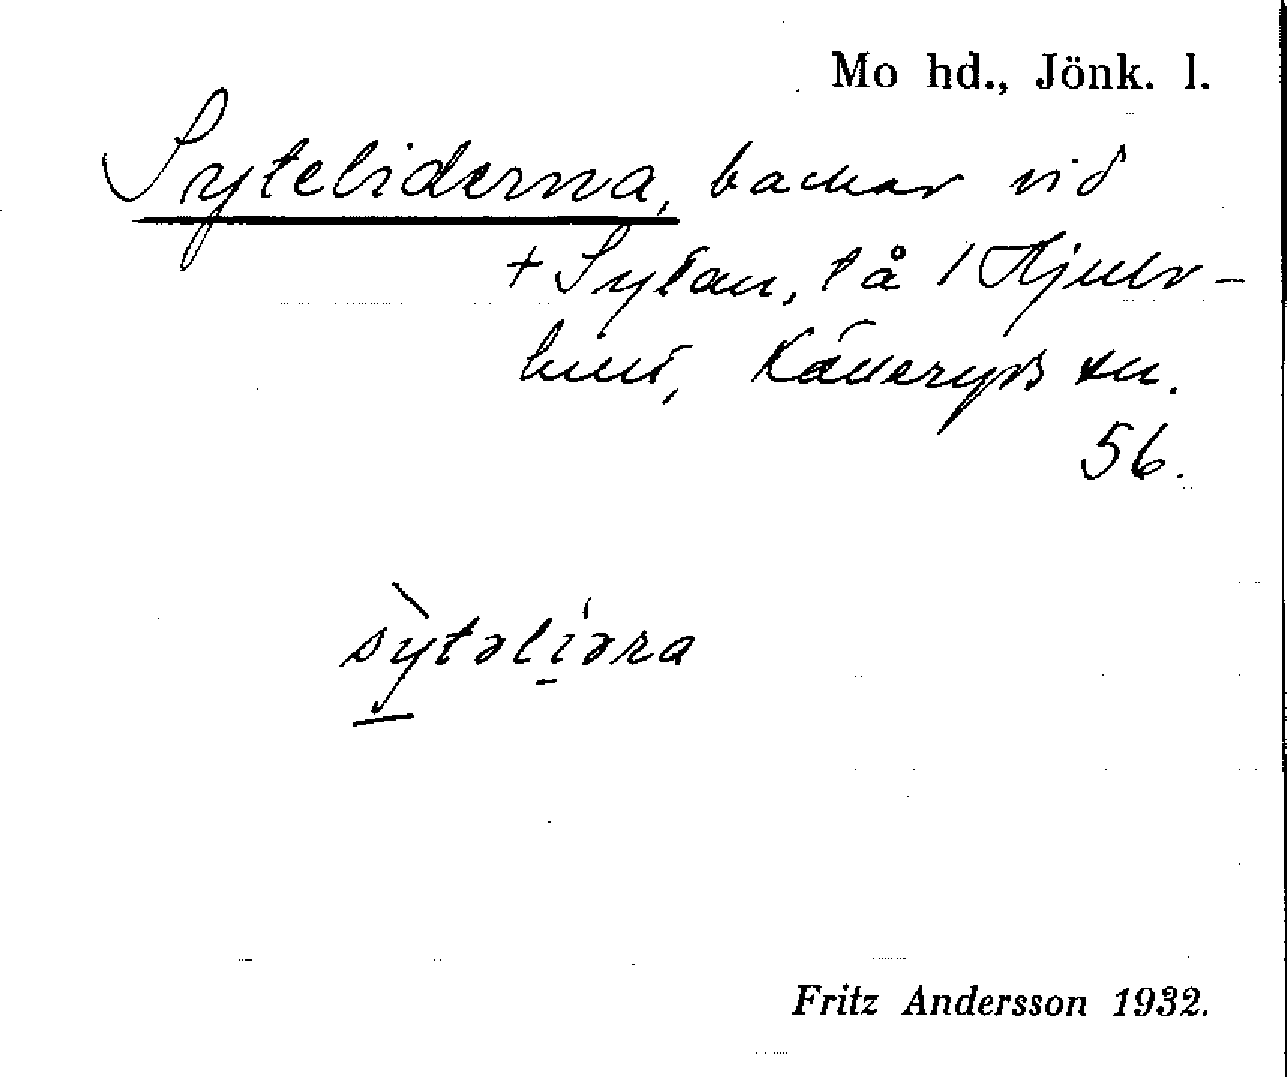 Mo hd., Jönk. l.
Syteliderna, backar vid
+ Sytan, t å 1 Hjuls-
hult, Källeryds sn.
56.
sytəliəra
Fritz Andersson 1932.